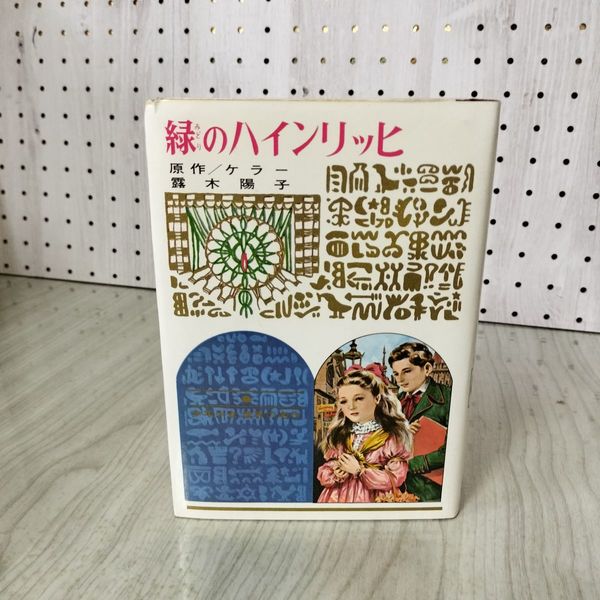 緑のハインリッヒ
みどり
原作/ケラー
露木陽子